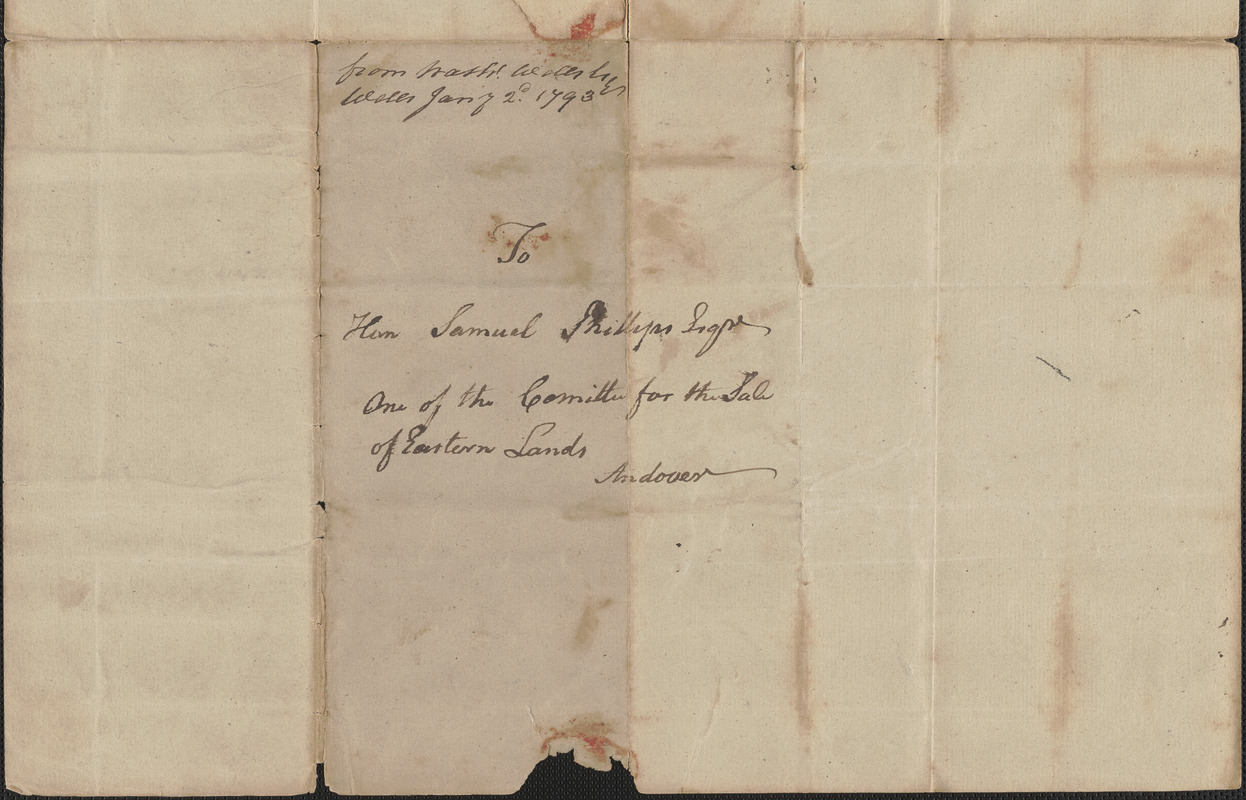 from Nathl. Wells
Wells Jany 2d. 1793
To
Hon Samuel Phillips Esqre
One of the Comitte for the Sale
of Eastern Lands
Andover